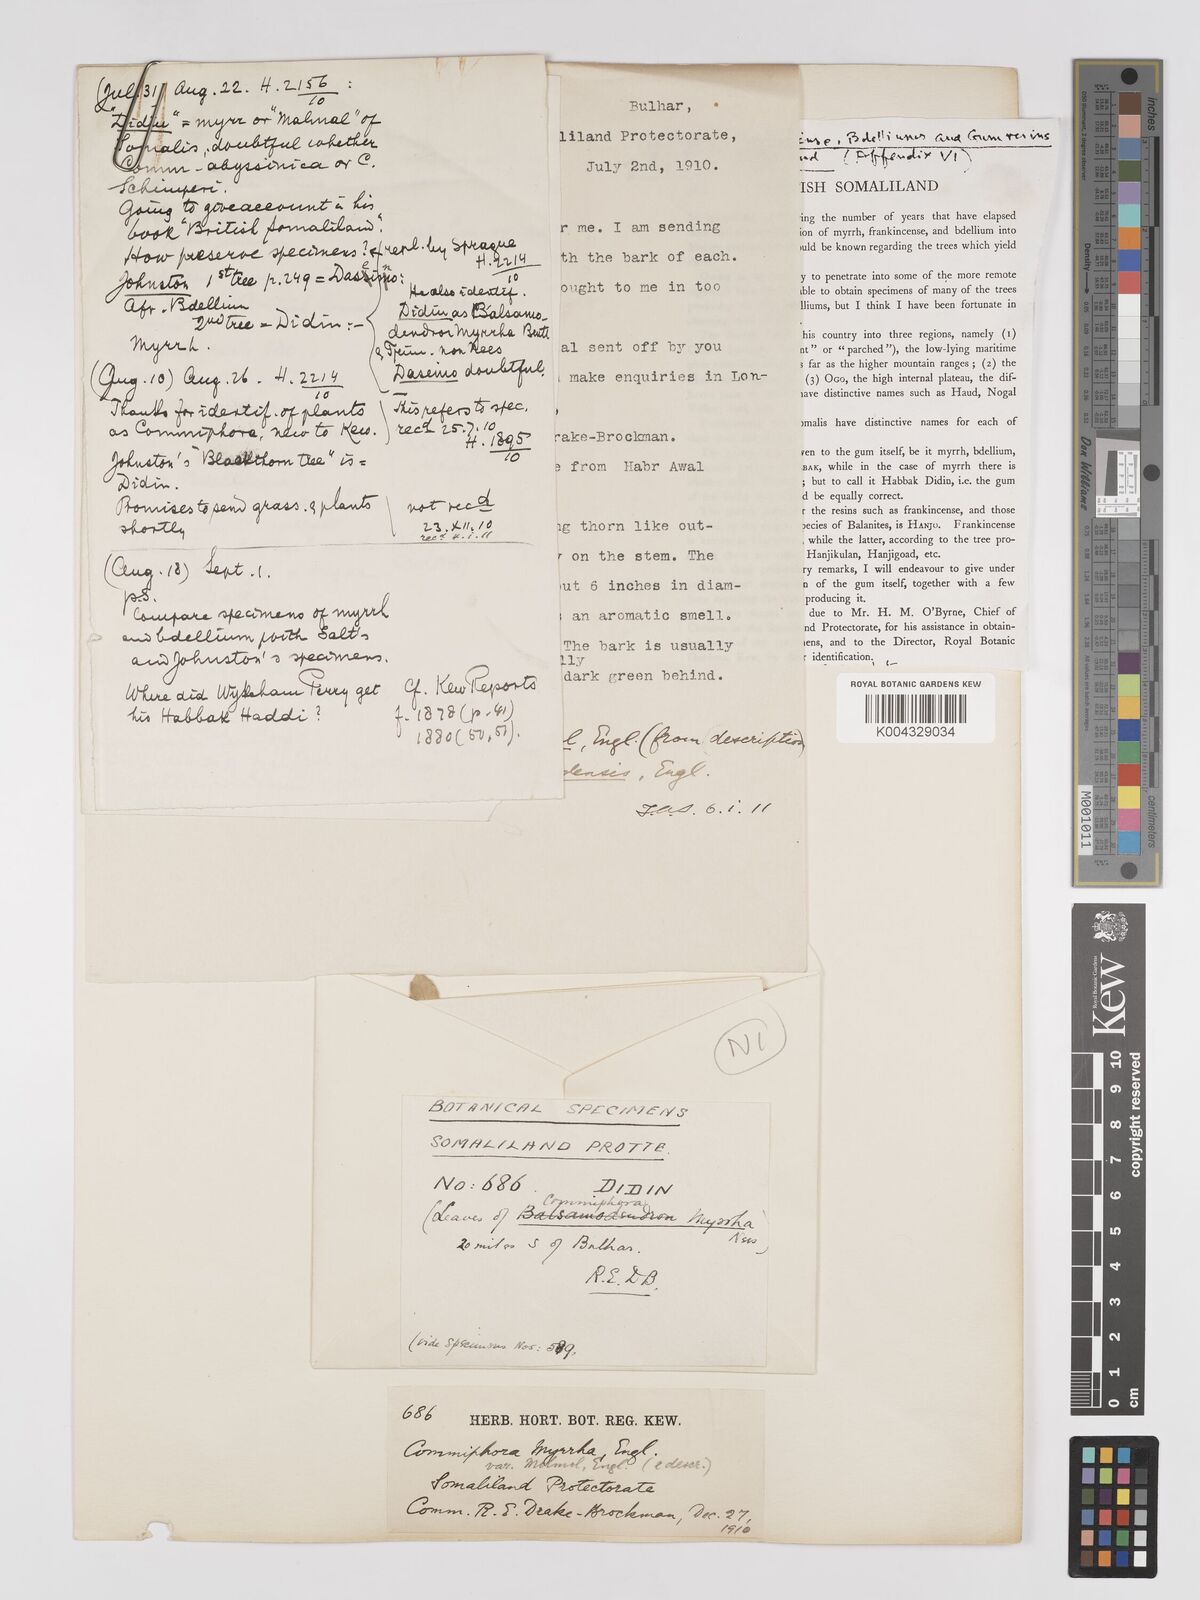 (Jul. 31) Aug. 22. H. 2156/10 :
"Didin" = myrr or "Malmal" of
Somalis; doubtful whether
Comm. abyssinica or C.
Schimperi.
Going to give account in his
book "British Somaliland".
How preserve specimens? repl. by Sprague
H. 2214/10
Johnston 1st tree p. 249 =
Afr. Bdellium
2nd tree = Didin :-
Myrrh.
He also identif.
Didin as Balsamo-
dendron Myrrha
non Nees
Daseino doubtful.
(Aug. 10) Aug. 26. H. 2214/10
Thanks for identif. of plants
as Commiphora, new to Kew.
This refers to spec.
recd 25.7.10
H. 1895/10
Johnston's "Blackthorn tree" is =
Didin.
Promises to send grass. & plants
shortly
not recd
23.XII.10
recd 4.1.11
(Aug. 18) Sept. 1.
p.s.
Compare specimens of myrrh
and bdellium with Salt's
and Johnston's specimens.
Where did Wykeham Perry get
his Habbak Haddi?
Cf. Kew Reports
f. 1878 (p. 41)
1880 (50, 51).
Bulhar,
liland Protectorate,
July 2nd, 1910.
r me. I am sending
th the bark of each.
ought to me in too
al sent off by you
make enquiries in Lon-
rake-Brockman.
e from Habr Awal
ng thorn like out-
y on the stem. The
out 6 inches in diam-
s an aromatic smell.
The bark is usually
lly
dark green behind.
l, Engl. (from description)
densis, Engl.
T.A.S. 6.i.11
ense, Bdelliums and Gum resins
and (Appendix VI)
ISH SOMALILAND
ring the number of years that have elapsed
ion of myrrh, frankincense, and bdellium into
ould be known regarding the trees which yield
y to penetrate into some of the more remote
ble to obtain specimens of many of the trees
lliums, but I think I have been fortunate in
his country into three regions, namely (1)
nt" or "parched"), the low-lying maritime
s far as the higher mountain ranges; (2) the
(3) OGO, the high internal plateau, the dif-
have distinctive names such as Haud, Nogal
omalis have distinctive names for each of
ven to the gum itself, be it myrrh, bdellium,
BAK, while in the case of myrrh there is
; but to call it Habbak Didin, i.e. the gum
d be equally correct.
r the resins such as frankincense, and those
species of Balanites, is HANJO. Frankincense
, while the latter, according to the tree pro-
Hanjikulan, Hanjigoad, etc.
ry remarks, I will endeavour to give under
n of the gum itself, together with a few
producing it.
due to Mr. H. M. O'Byrne, Chief of
nd Protectorate, for his assistance in obtain-
ens, and to the Director, Royal Botanic
r identification.
ROYAL BOTANIC GARDENS KEW
K004329034
N1
BOTANICAL SPECIMENS
SOMALILAND PROTTE.
No: 686. DIDIN
Commiphora
(Leaves of Balsamodendron Myrrha
Nees)
20 miles S of Bulhar.
R.E.D.B.
(vide Specimens Nos: 589.
686 HERB. HORT. BOT. REG. KEW.
Commiphora Myrrha, Engl.
var. Molmol, Engl. (e descr.)
Somaliland Protectorate
Comm. R. E. Drake-Brockman, Dec. 27,
1910
Density
Don Williams
centimeters
M001011
Royal Botanic Gardens
Kew
0 1 2 3 4 5 6 7 8 9 10
cm
copyright reserved